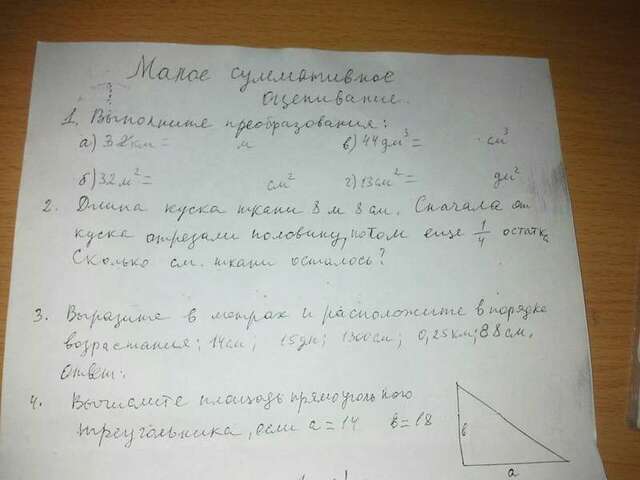 Малое суммативное
оценивание.
1. Выполните преобразования:
а) 32км = м в) 44дм³ = см³
б) 32м² = см² г) 13см² = дм²
2. Длина куска ткани 8 м 8 см. Сначала от
куска отрезали половину, потом еще 1/4 остатка.
Сколько см. ткани осталось?
3. Выразите в метрах и расположите в порядке
возрастания: 14см; 15дм; 1300см; 0,25км; 88см.
Ответ:
4. Вычислите площадь прямоугольного
треугольника, если a = 14 в = 18
в
a